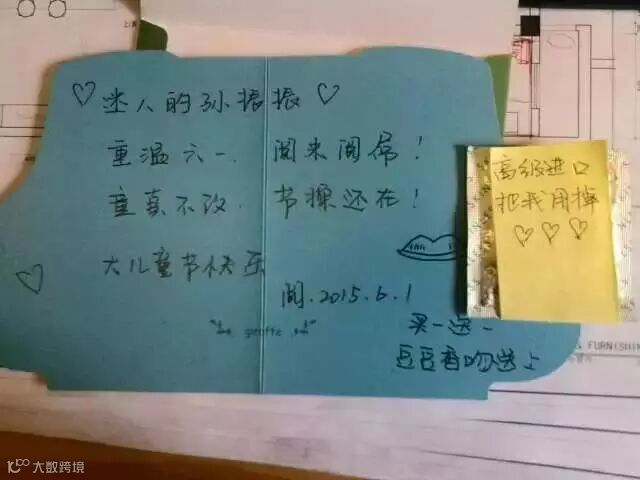 迷人的孙振振
重温六一. 闺来闺屌!
童真不改. 节操还在!
大儿童节快乐
闺.2015.6.1
买一送一
豆豆香吻送上
高级进口
把我用掉
& FURNISHIN
大数跨境